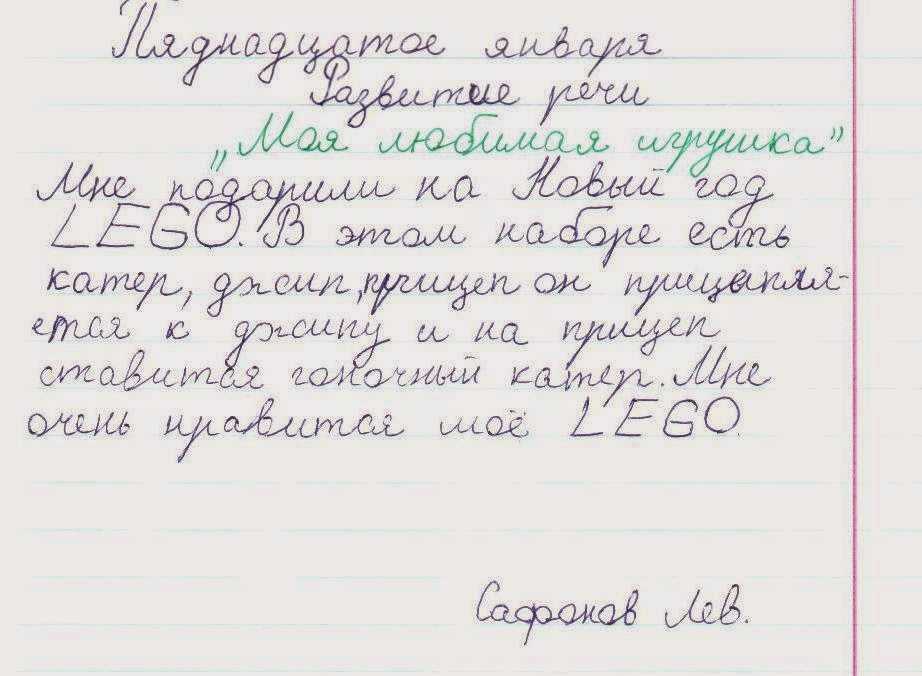 Пяднадцатое января
Развитие речи
„Моя любимая игрушка"
Мне подарили на Новый год
LEGO. В этом наборе есть
катер, джип, прицеп он прицепля-
ется к джипу и на прицеп
ставится гоночный катер. Мне
очень нравится моё LEGO.
Сафонов Лев.